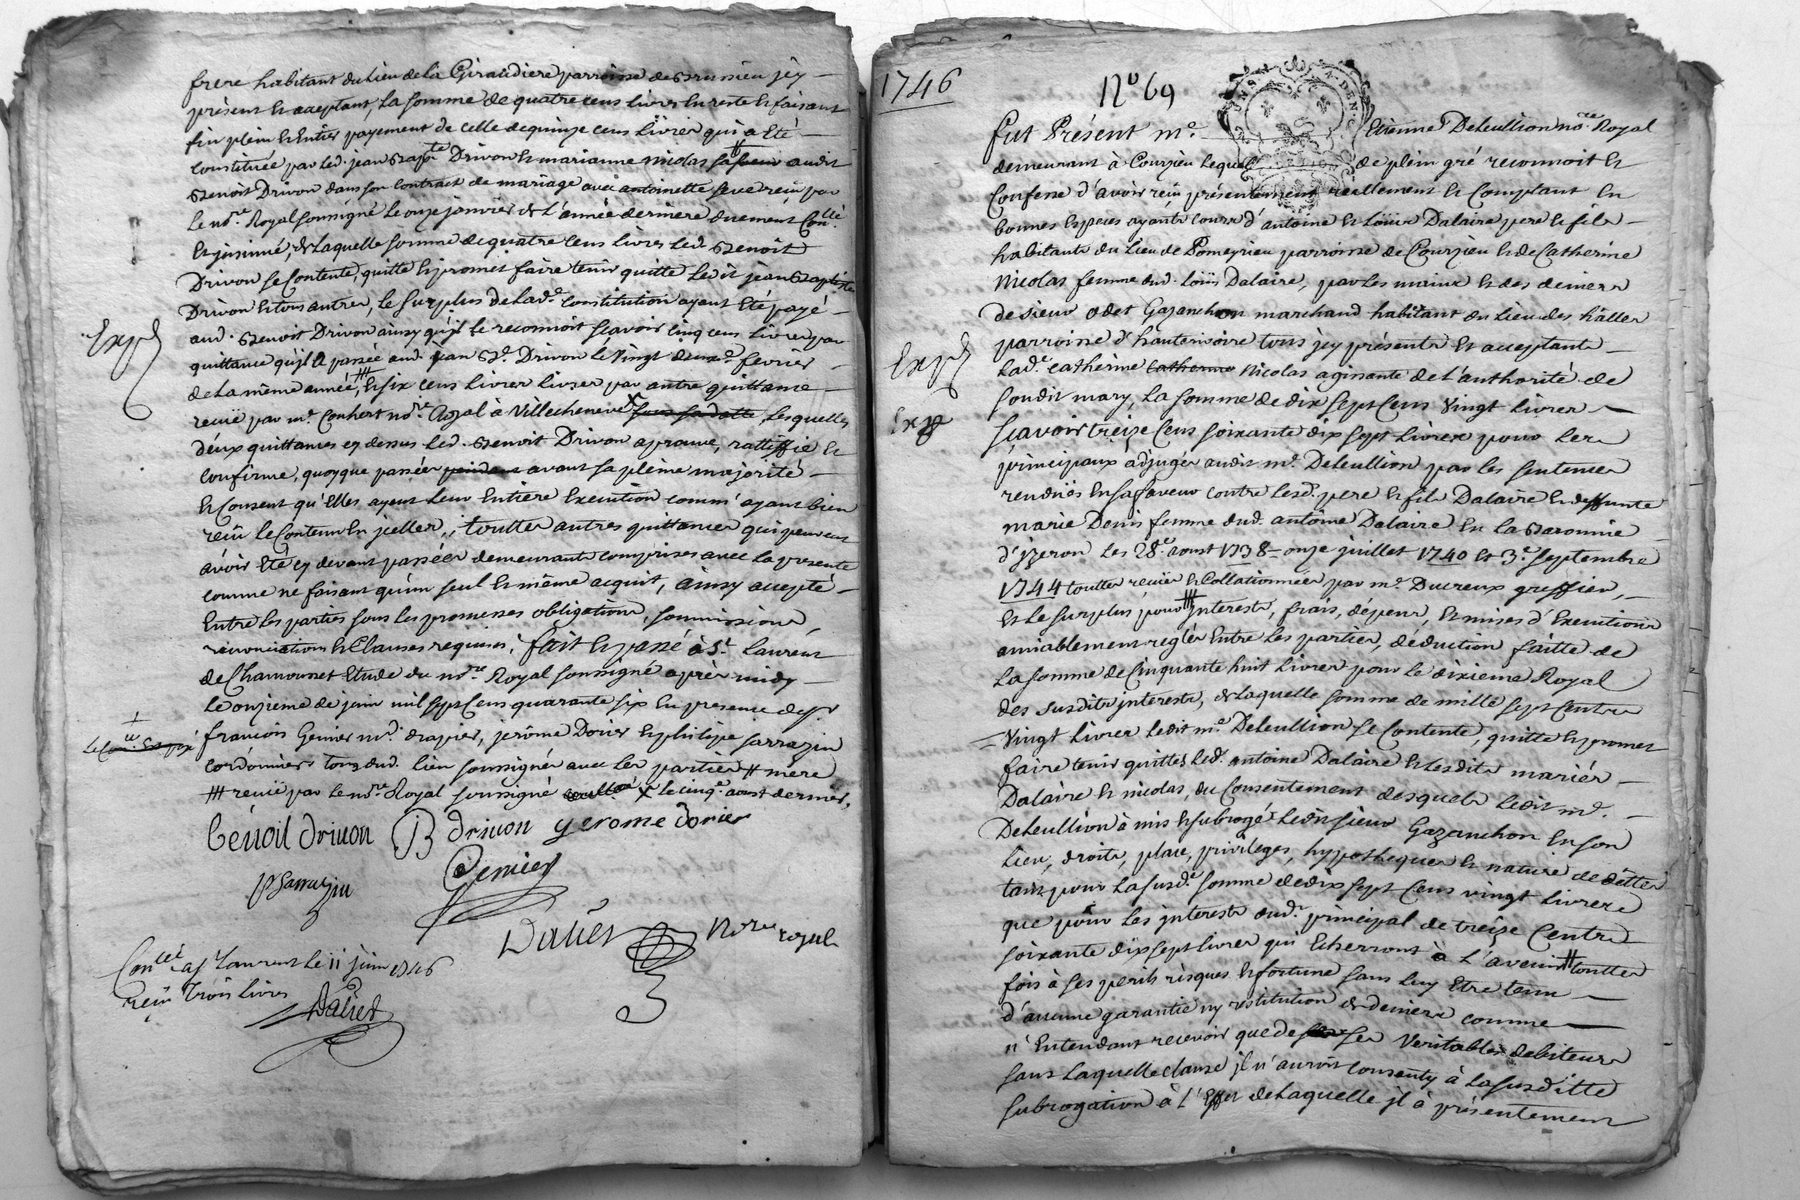 frere habitant du Lieu de la Giraudiere parroisse de Brussieu jcy
présent et acceptant, La somme de quatre cens livres en reste et faisant
fin plein et Entier payement de celle de quinze cens Livres qui a Eté
constituée par led. jean Bapte Drivon et marianne Nicolas audit
Benoit Drivon dans son contract de mariage avec antoinette reçu par
Le nore Royal soussigné Le onze janvier de L'année derniere duement Conllé
Et jnsinué, de Laquelle somme de quatre Cens livres Led. Benoit
Drivon se Contente, quitte et promet faire tenir quitte Ledit jean Baptiste
Drivon et tous autres, Le surplus de Lade constitution ayant Eté payé
aud. Benoit Drivon ainsy qu'jl le reconnoit scavoir Cinq cens Livres par
Exp
quittance qu'jl a passée aud. jean Bte Drivon Le Vingt deuxe fevrier
de La même année, ### Et six cens Livres par autre quittance
reçüe par me Conhert nore Royal à Villecheneve Lesquelles
deux quittances cy dessus Led. Benoit Drivon aprouve, rattiffie et
confirme, quoyque passées avant sa pleine majorité
Et Consent qu'Elles ayent Leur Entiere Execution comm' ayant bien
reçû Le Contenu En jcelles, touttes autres quittances qui peuvent
avoir Eté cy devant passées demeurants comprises avec La presente
comme ne faisant qu'un seul et même acquit, ainsy accepté
Entre Les parties sous Les promesses obligations, soumissions,
renonciations et Clauses requises, fait et passé à St Laurent
de Chamousset Etude du nore Royal soussigné après midy
Le onzieme de juin mil sept Cens quarante six En presence de sr
françois Genier md drapier, jerôme Dorier et philipe sarrazin
cordonniers tous dud. Lieu soussignés avec Les parties # mere
### reçüe par Le nore Royal soussigné x Le cinqe aoust dernier,
benoit drivon JB drivon gerome dorier
Genier
P Sarrazin
Daliet Nore royal
Conllé a St Laurent Le 11 juin 1746
reçu Trois livres
Daliet
1746
No 69
Fut Présent me Etienne Deleullion nore Royal
demeurant à Courzieu Lequel de plein gré reconnoit et
Confesse d'avoir reçu présentement reellement et Comptant En
bonnes Especes ayants cours d'antoine et Loüis Dalaire pere et fils
habitants du Lieu de Pomeyrieu parroisse de Courzieu et de Catherine
Nicolas femme dud. Loüis Dalaire, par Les mains et des deniers
de sieur odet Gazanchon marchand habitant du Lieu des halles
parroisse d'hauterivoire tous jcy présents et acceptants
Exp
Lade catherine Catherine Nicolas agissante de L'authorité de
sondit mary, La somme de dix sept Cens Vingt Livres
Exp
sçavoir treize Cens soixante dix sept Livres pour Les
principaux adjugés audit me Deleullion par les sentences
rendües En sa faveur contre Lesd. pere et fils Dalaire et deffunte
marie Denis femme dud. antoine Dalaire En la Baronnie
d'jzeron Les 28e aoust 1738 onze juillet 1740 et 3e septembre
1744 touttes reçües et Collationnées par me Ducreux greffier,
et Le surplus pour ### jnterests, frais, dépens, et mises d'Executions
amiablement reglés Entre Les parties, déduction faitte de
La somme de Cinquante huit Livres pour Le dixieme Royal
des susdits jnterests, de Laquelle somme de mille sept Cents
Vingt Livres Ledit me Deleullion se Contente, quitte et promet
faire tenir quittes Led. antoine Dalaire et Lesdits mariés
Dalaire et nicolas, du Consentement desquels Ledit me
Deleullion à mis et subrogé Ledit sieur Gazanchon En son
Lieu, droits, place, privileges, hypotheques et nature de dettes
tant pour La susde somme de dix sept Cens vingt Livres
que pour Les jnterests dudt principal de treize Cents
soixante dix sept Livres qui Echerront à L'avenir # touttes
fois à ses perils risques et fortune sans Luy Etre tenu
d'aucune garantie ny restitution de deniers comme
n'Entendant recevoir que de ses Veritables debiteurs
sans Laquelle clause jl n'auroit consenty à La susditte
subrogation à L'Effet de Laquelle jl à présentement